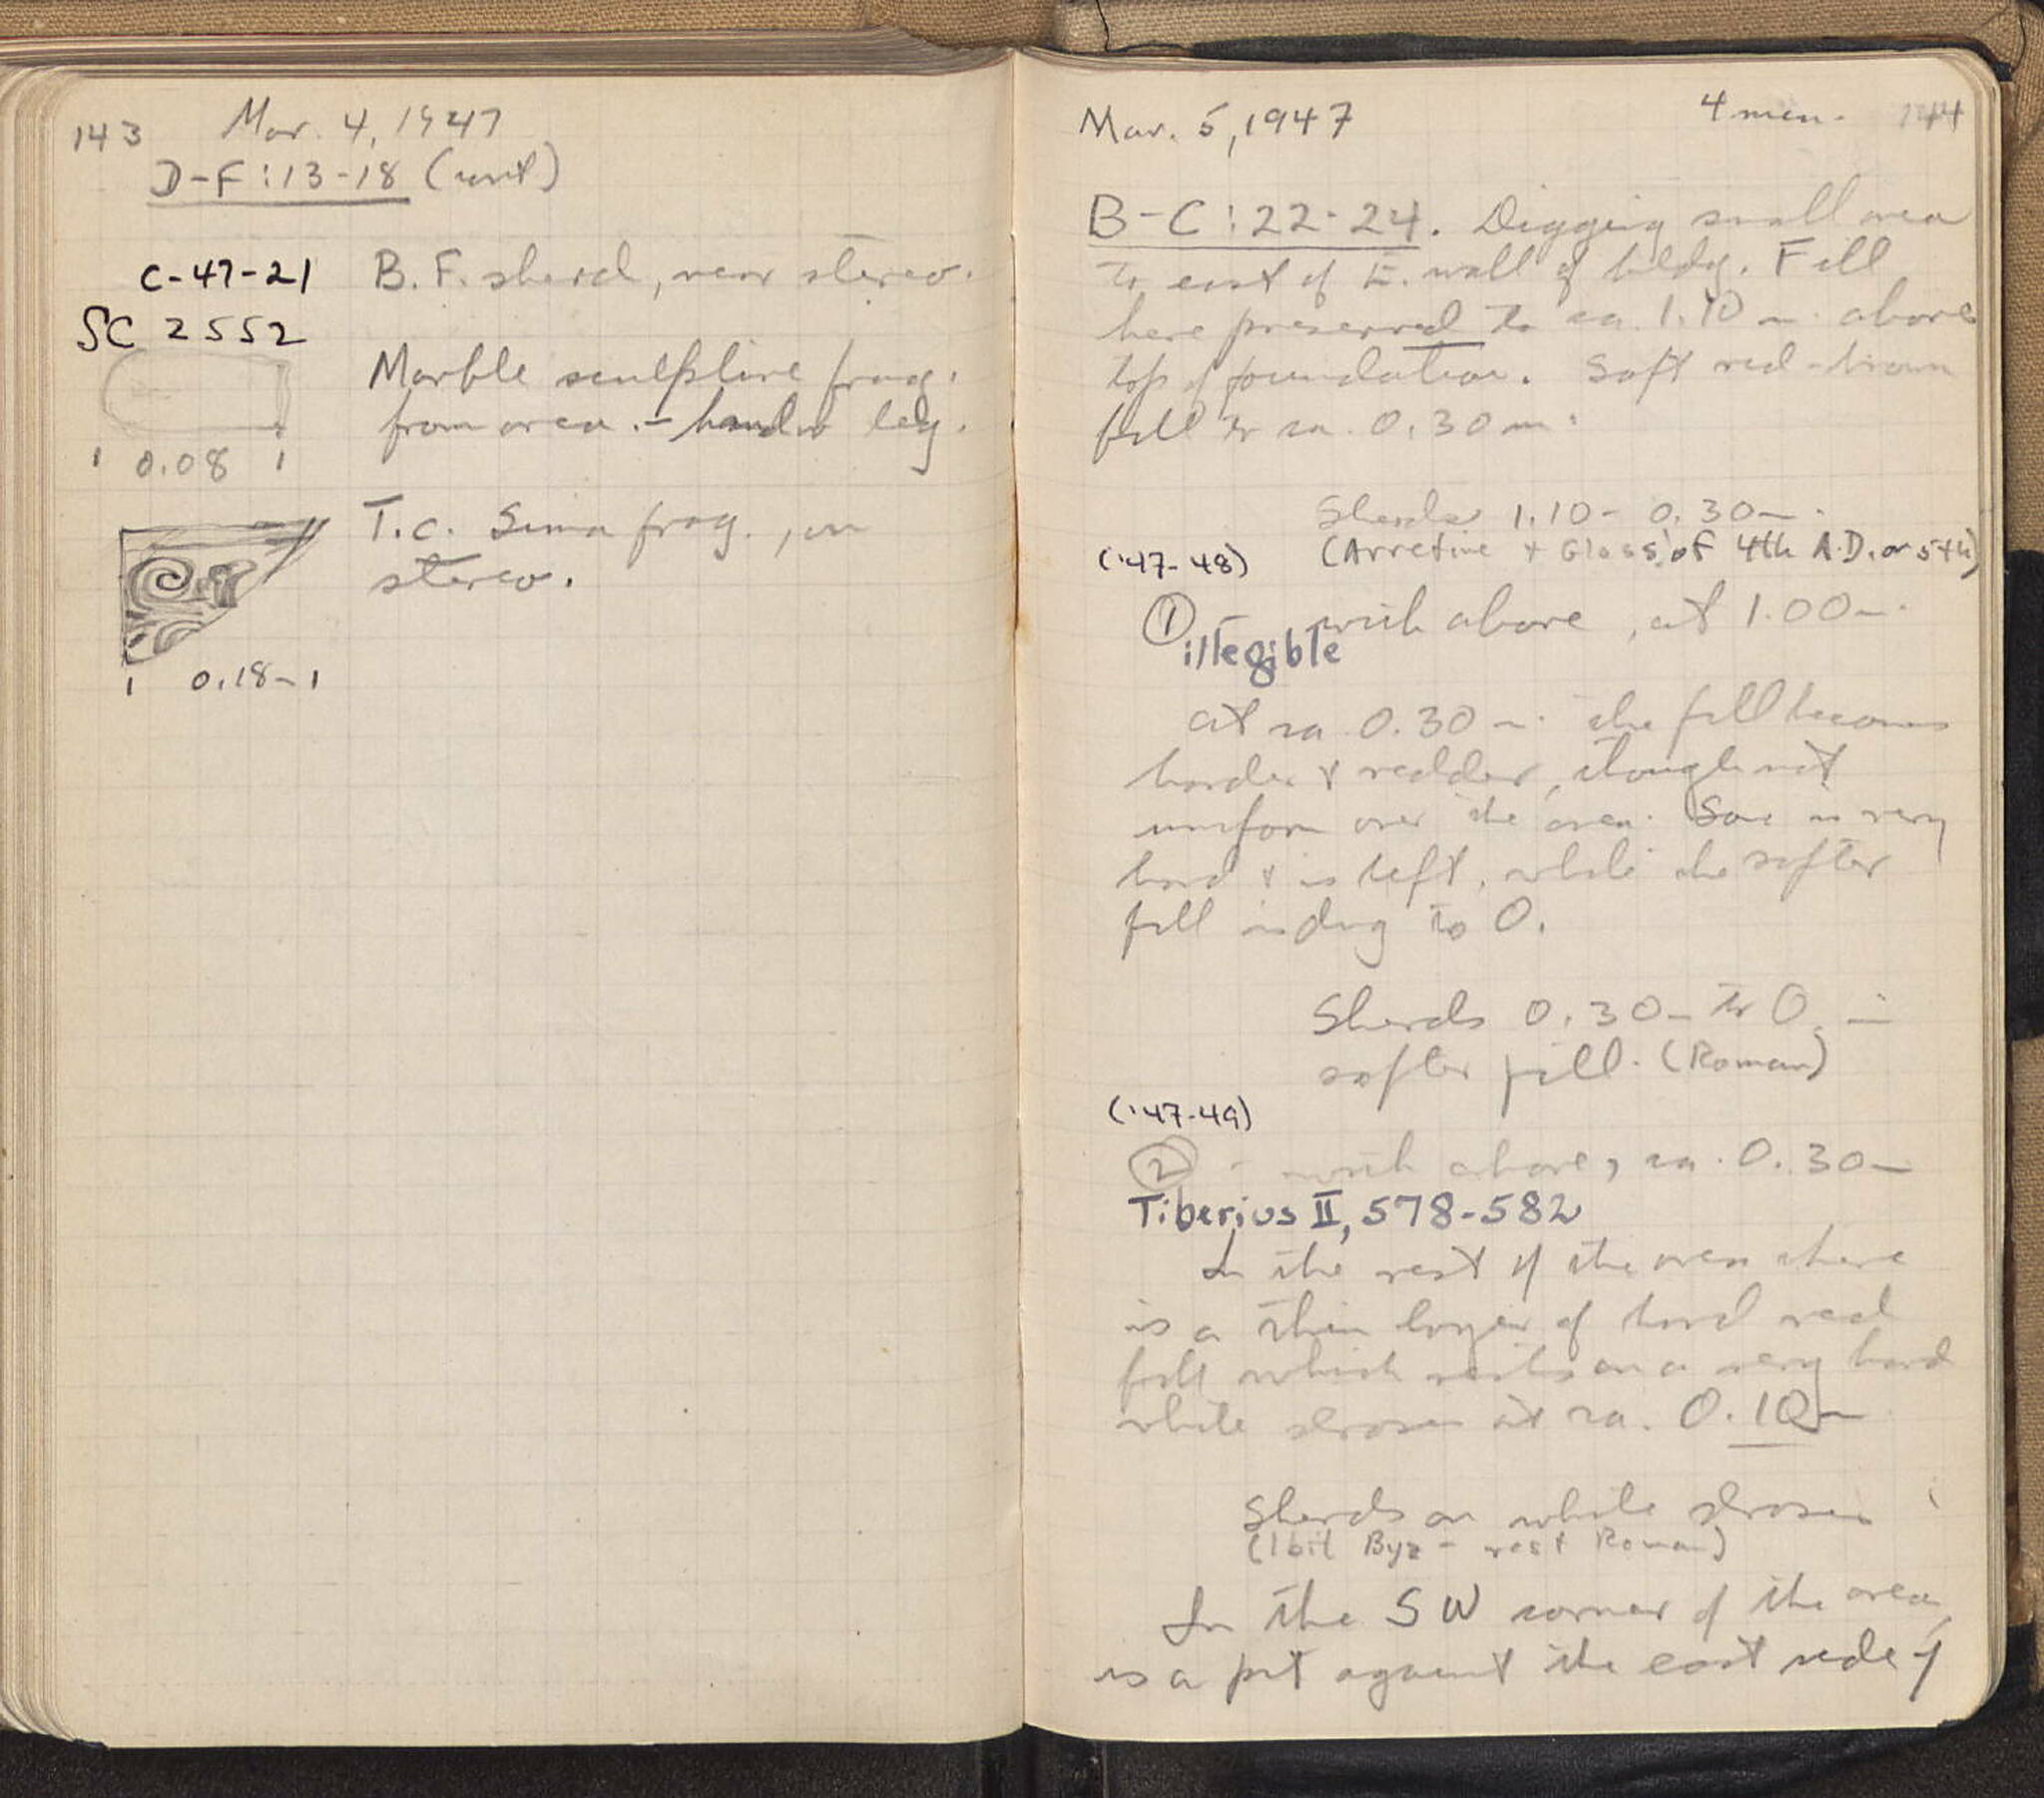 143 Mar. 4, 1947
D-F:13-18 (cont)
C-47-21 B.F. sherd, near stereo.
SC 2552
Marble sculpture frag.
from area. - hand or leg.
0.08
T.c. Sima frag., on
stereo.
0.18-
Mar. 5, 1947 4 men. 144
B-C:22-24. Digging small area
to east of E. wall of bldg. Fill
here preserved to ca. 1.10 m. above
top of foundation. Soft red-brown
fill to ca. 0.30 m.
Sherds 1.10 - 0.30m.
('47-48) (Arretine + Glass of 4th A.D. or 5th)
① - with above, at 1.00m.
illegible
at ca 0.30 m. the fill becomes
harder & redder, though not
uniform over the area. Some is very
hard & is left, while the softer
fill is dug to 0.
Sherds 0.30m to 0, in
softer fill. (Roman)
('47-49)
② - with above, ca. 0.30m
Tiberius II, 578-582
In the rest of the area there
is a thin layer of hard red
fill which rests on a very hard
white stroses at ca. 0.10m
Sherds on white stroses
(1 bit Byz - rest Roman)
In the SW corner of the area,
is a pit against the east side of